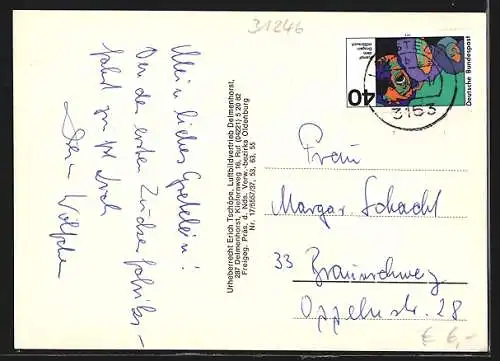 31246
Mein liebes Gretelein!
Von der ersten
Dein Wölfchen
Urheberrecht Erich Tschöpe, Luftbildvertrieb Delmenhorst,
287 Delmenhorst, Kiefernweg 16, Ruf (04221) 5 20 82
Freigeg. Präs. d. Nds. Verw. bezirks Oldenburg
Nr. 17/555/37, 53, 63, 55
Deutsche Bundespost
40
3163
Frau
Margar. Schacht
33 Braunschweig
Oppelnstr. 28
€ 6,-